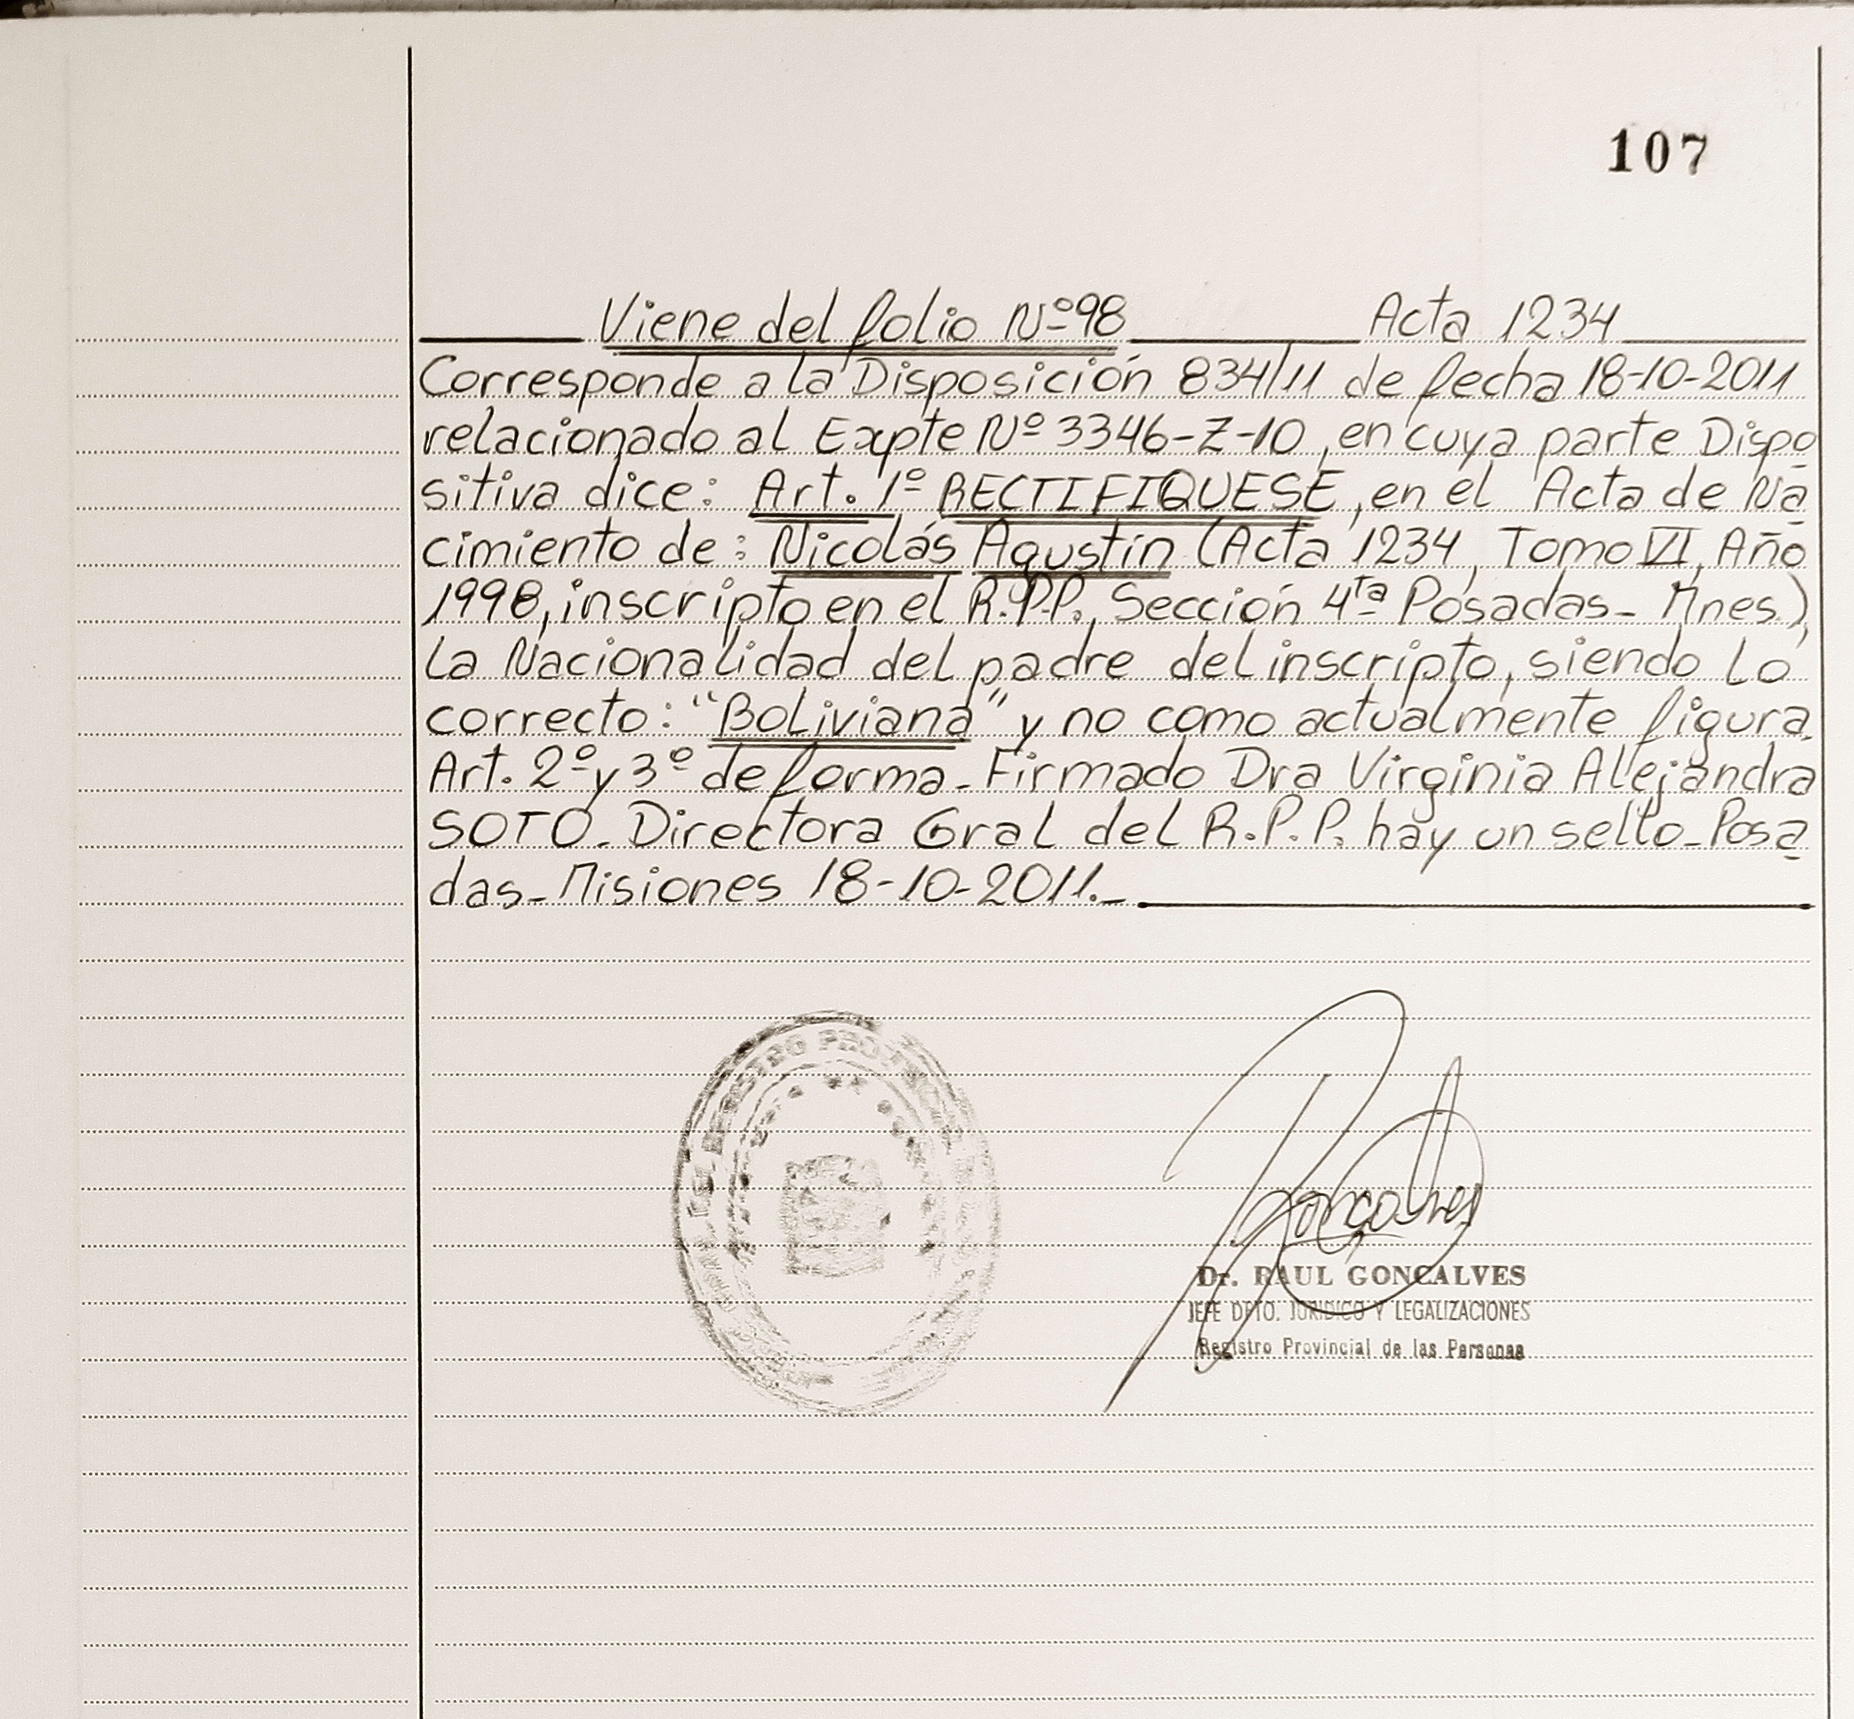 107
Viene del folio Nº98 Acta 1234
Corresponde a la Disposición 834/11 de fecha 18-10-2011
relacionado al Expte Nº 3346-Z-10, en cuya parte Dispo
sitiva dice: Art. 1º RECTIFIQUESE, en el Acta de Na
cimiento de: Nicolás Agustín (Acta 1234, Tomo VI, Año
1998, inscripto en el R.P.P., Sección 4ta Posadas- Mnes.),
la Nacionalidad del padre del inscripto, siendo lo
correcto: "Boliviana" y no como actualmente figura.
Art. 2º y 3º de forma- Firmado Dra Virginia Alejandra
SOTO- Directora Gral del R.P.P. hay un sello- Posa
das- Misiones 18-10-2011.-
REGISTRO PROVINCIAL
Dr. RAUL GONCALVES
JEFE DPTO. JURIDICO Y LEGALIZACIONES
Registro Provincial de las Personas